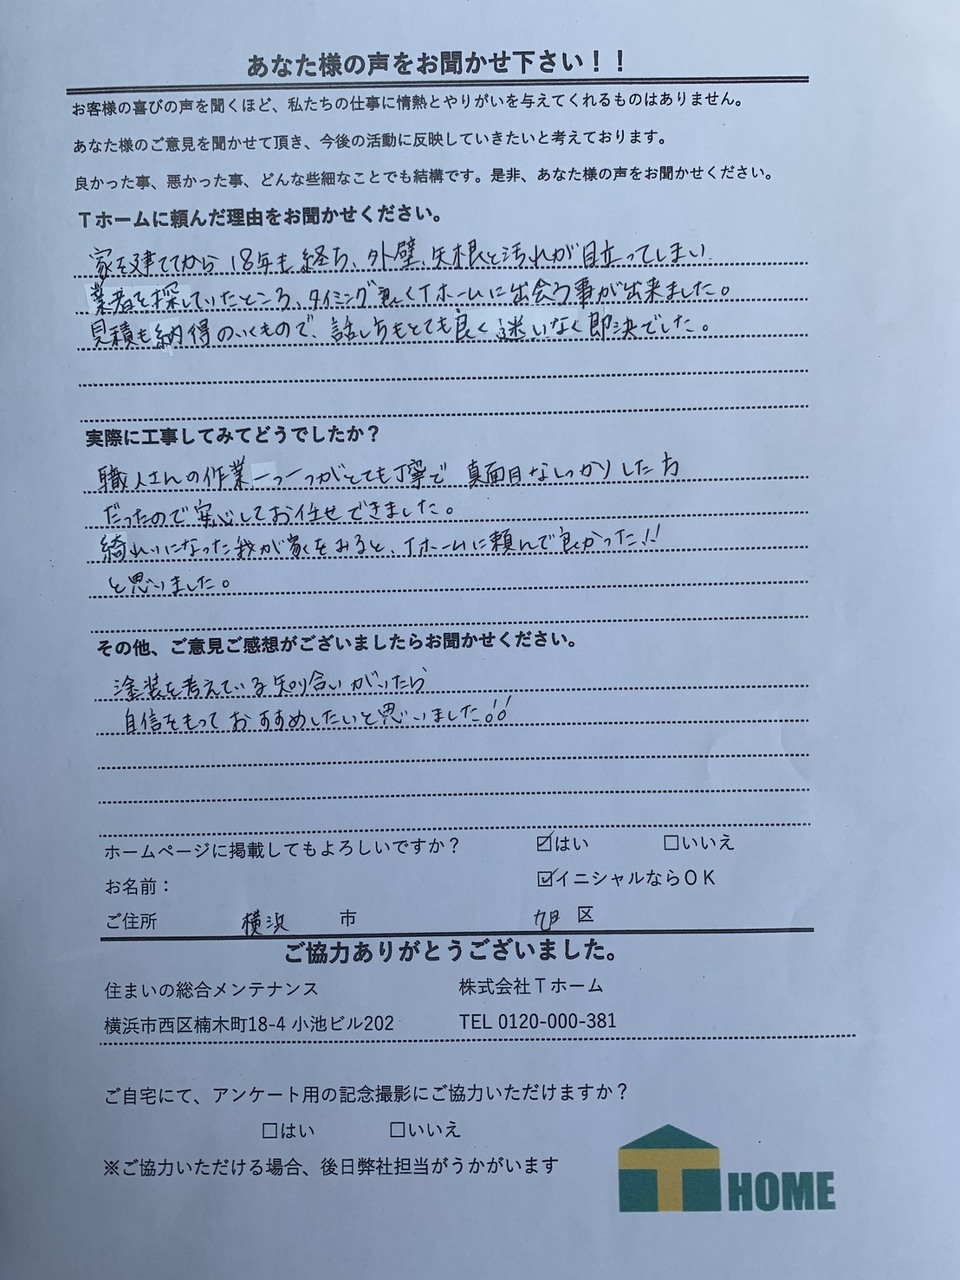 あなた様の声をお聞かせ下さい！！
お客様の喜びの声を聞くほど、私たちの仕事に情熱とやりがいを与えてくれるものはありません。
あなた様のご意見を聞かせて頂き、今後の活動に反映していきたいと考えております。
良かった事、悪かった事、どんな些細なことでも結構です。是非、あなた様の声をお聞かせください。
Ｔホームに頼んだ理由をお聞かせください。
家を建ててから18年も経ち、外壁、屋根と汚れが目立ってしまい
業者を探していたところ、タイミング良くTホームに出会う事が出来ました。
見積も納得のいくもので、話しもとても良く迷いなく即決でした。
実際に工事してみてどうでしたか？
職人さんの作業一つ一つがとても丁寧で 真面目なしっかりした方
だったので安心してお任せできました。
綺れいになった我が家をみると、Tホームに頼んで良かった!!
と思いました。
その他、ご意見ご感想がございましたらお聞かせください。
塗装を考えている知り合いがいたら
自信をもっておすすめしたいと思いました!!
ホームページに掲載してもよろしいですか？ ☑はい □いいえ
お名前： ☑イニシャルならＯＫ
ご住所 横浜 市 旭 区
ご協力ありがとうございました。
住まいの総合メンテナンス 株式会社Ｔホーム
横浜市西区楠木町18-4 小池ビル202 TEL 0120-000-381
ご自宅にて、アンケート用の記念撮影にご協力いただけますか？
□はい □いいえ
※ご協力いただける場合、後日弊社担当がうかがいます
T HOME